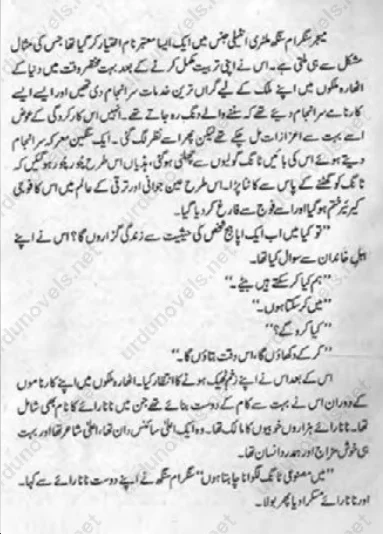 میجر سنگرام سنگھ ملٹری انٹیلی جنس میں ایک ایسا معتبر نام اختیار کر گیا تھا جس کی مثال
مشکل سے ہی ملتی ہے۔ اس نے اپنی تربیت مکمل کرنے کے بعد بہت مختصر وقت میں دنیا کے
اٹھارہ ملکوں میں اپنے ملک کے لیے گراں ترین خدمات سرانجام دی تھیں اور ایسے ایسے
کارنامے سرانجام دیئے تھے کہ سننے والے دنگ رہ جاتے تھے۔ انہیں اس کارکردگی کے عوض
اسے بہت سے اعزازات مل چکے تھے لیکن پھر اسے نظر لگ گئی۔ ایک سنگین معرکہ سرانجام
دیتے ہوئے اس کی بائیں ٹانگ گولیوں سے چھلنی ہو گئی، ہڈیاں اس طرح چور چور ہو گئیں کہ
ٹانگ کو گھٹنے کے پاس سے کاٹنا پڑا۔ اس طرح عین جوانی اور ترقی کے عالم میں اس کا فوجی
کیریئر ختم ہو گیا اور اسے فوج سے فارغ کر دیا گیا۔
"تو کیا میں اب ایک اپاہج شخص کی حیثیت سے زندگی گزاروں گا؟ اس نے اپنے
اہلِ خاندان سے سوال کیا تھا۔
"ہم کیا کر سکتے ہیں بیٹے۔"
"میں کر سکتا ہوں۔"
"کیا کرو گے؟"
"کر کے دکھاؤں گا، اس وقت بتاؤں گا۔"
اس کے بعد اس نے اپنے زخم ٹھیک ہونے کا انتظار کیا۔ اٹھارہ ملکوں میں اپنے کارناموں
کے دوران اس نے بہت سے کام کے دوست بنائے تھے جن میں نانا رائے کا نام بھی شامل
تھا۔ نانا رائے ہزاروں خوبیوں کا مالک تھا۔ وہ ایک اعلیٰ سائنس دان تھا، اعلیٰ شاعر تھا اور بہت
ہی خوش مزاج اور ہمدرد انسان تھا۔
"میں مصنوعی ٹانگ لگوانا چاہتا ہوں" سنگرام سنگھ نے اپنے دوست نانا رائے سے کہا۔
اور نانا رائے مسکرا دیا پھر بولا۔
urdunovels.net